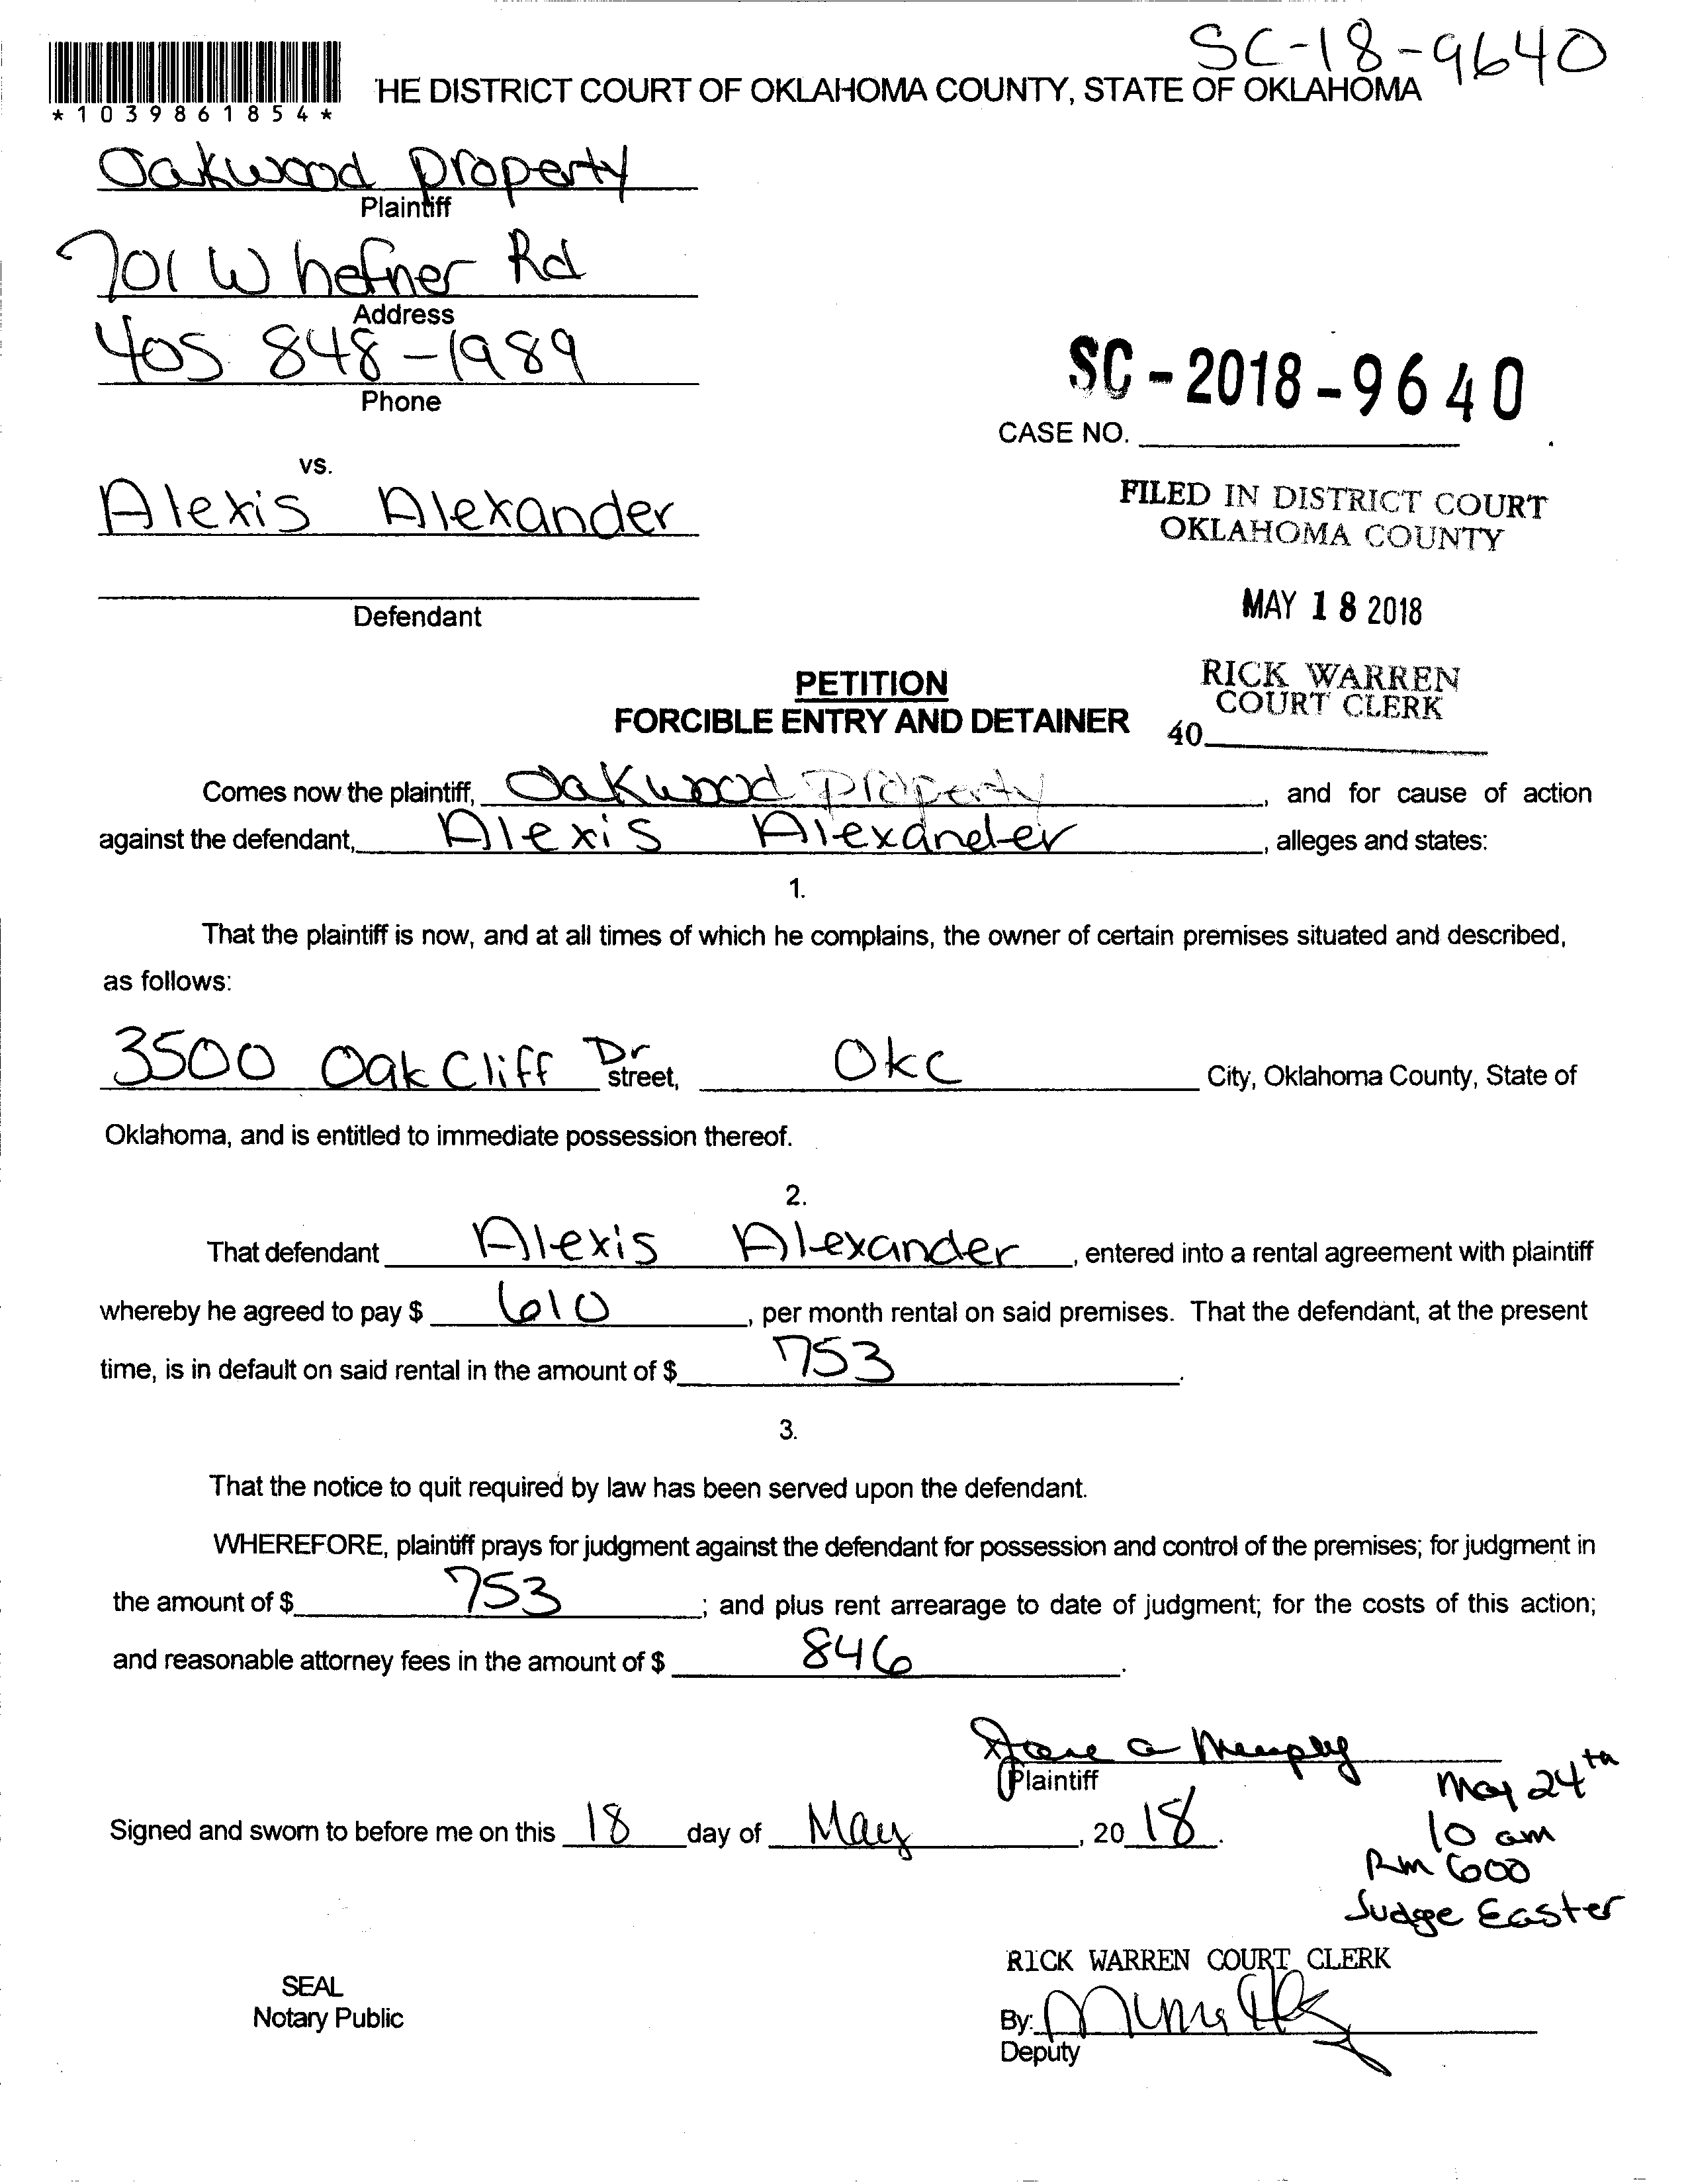 SC-18-9640
*1039861854*
HE DISTRICT COURT OF OKLAHOMA COUNTY, STATE OF OKLAHOMA
Oakwood property
Plaintiff
701 W hefner Rd
Address
405 848-1989
Phone
SC-2018-9640
CASE NO.
vs.
Alexis Alexander
FILED IN DISTRICT COURT
OKLAHOMA COUNTY
Defendant
MAY 18 2018
PETITION
FORCIBLE ENTRY AND DETAINER
RICK WARREN
COURT CLERK
40
Comes now the plaintiff, Oakwood Property, and for cause of action
against the defendant, Alexis Alexander, alleges and states:
1.
That the plaintiff is now, and at all times of which he complains, the owner of certain premises situated and described,
as follows:
3500 Oak Cliff Dr street, Okc City, Oklahoma County, State of
Oklahoma, and is entitled to immediate possession thereof.
2.
That defendant Alexis Alexander, entered into a rental agreement with plaintiff
whereby he agreed to pay $ 610, per month rental on said premises. That the defendant, at the present
time, is in default on said rental in the amount of $ 753.
3.
That the notice to quit required by law has been served upon the defendant.
WHEREFORE, plaintiff prays for judgment against the defendant for possession and control of the premises; for judgment in
the amount of $ 753; and plus rent arrearage to date of judgment; for the costs of this action;
and reasonable attorney fees in the amount of $ 846.
Plaintiff
Signed and sworn to before me on this 18 day of May, 2018.
May 24th
10 am
Rm 600
Judge Easter
RICK WARREN COURT CLERK
SEAL
Notary Public
By:
Deputy